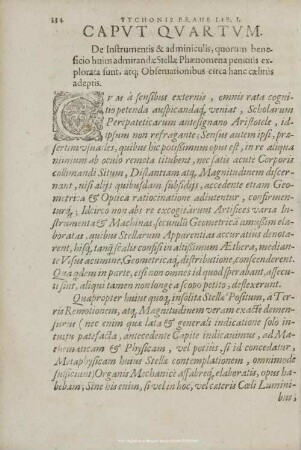 334 TYCHONIS BRAHE LIB. I.
CAPVT QVARTVM.
De Instrumentis & adminiculis, quorum bene-
ficio huius admirandæ Stellæ Phænomena penitius ex-
plorata sunt, atq; Obseruationibus circa hanc cælitùs
adeptis.
CVM à sensibus externis, omnis rata cogni-
tio petenda auspicandáq; veniat, Scholarum
Peripateticarum antesignano Aristotele, id-
ipsum non refragante: Sensus autem ipsi, præ-
sertim visuales, quibus hic potissimum opus est, in re aliqua
nimium ab oculo remota titubent, nec satis acutè Corporis
collimandi Situm, Distantiam atq; Magnitudinem discer-
nant, nisi alijs quibusdam subsidijs, accedente etiam Geo-
metrica & Optica ratiocinatione adiutentur, confirmen-
turq;: Idcirco non abs re excogitârunt Artifices varia In-
strumenta & Machinas, seculùm Geometricâ
elabo-
ratas, quibus Stellarum Apparentias accuratiùs denota-
rent, hisq; tanq; scalis consisi in altissimum Æthera, median-
te Visus acumine, Geometricáq; distributione, conscenderent.
Qua qdem in parte, etsi non omnes id quod sperabant, assecu-
ti sunt, aliqui tamen non longe à scopo petito, deflexerunt.
Quapropter huius quoq; insolitæ Stellæ Positum, a Ter-
ris Remotionem, atq; Magnitudinem veram exactè demen-
suri (nec enim qua lata & generali indicatione solo in-
tuitu patefacta, antecedente Capite indicauimus, ad Ma-
thematicam & Physicam, vel potius, si id concedatur,
Metaphysicam huius Stellæ contemplationem, omnimodè
sufficiunt) Organis Mechanicè affabreq; elaboratis, opus ha-
bebam; Sine his enim, si vel in hoc, vel cæteris Cœli Lumini-
bus,